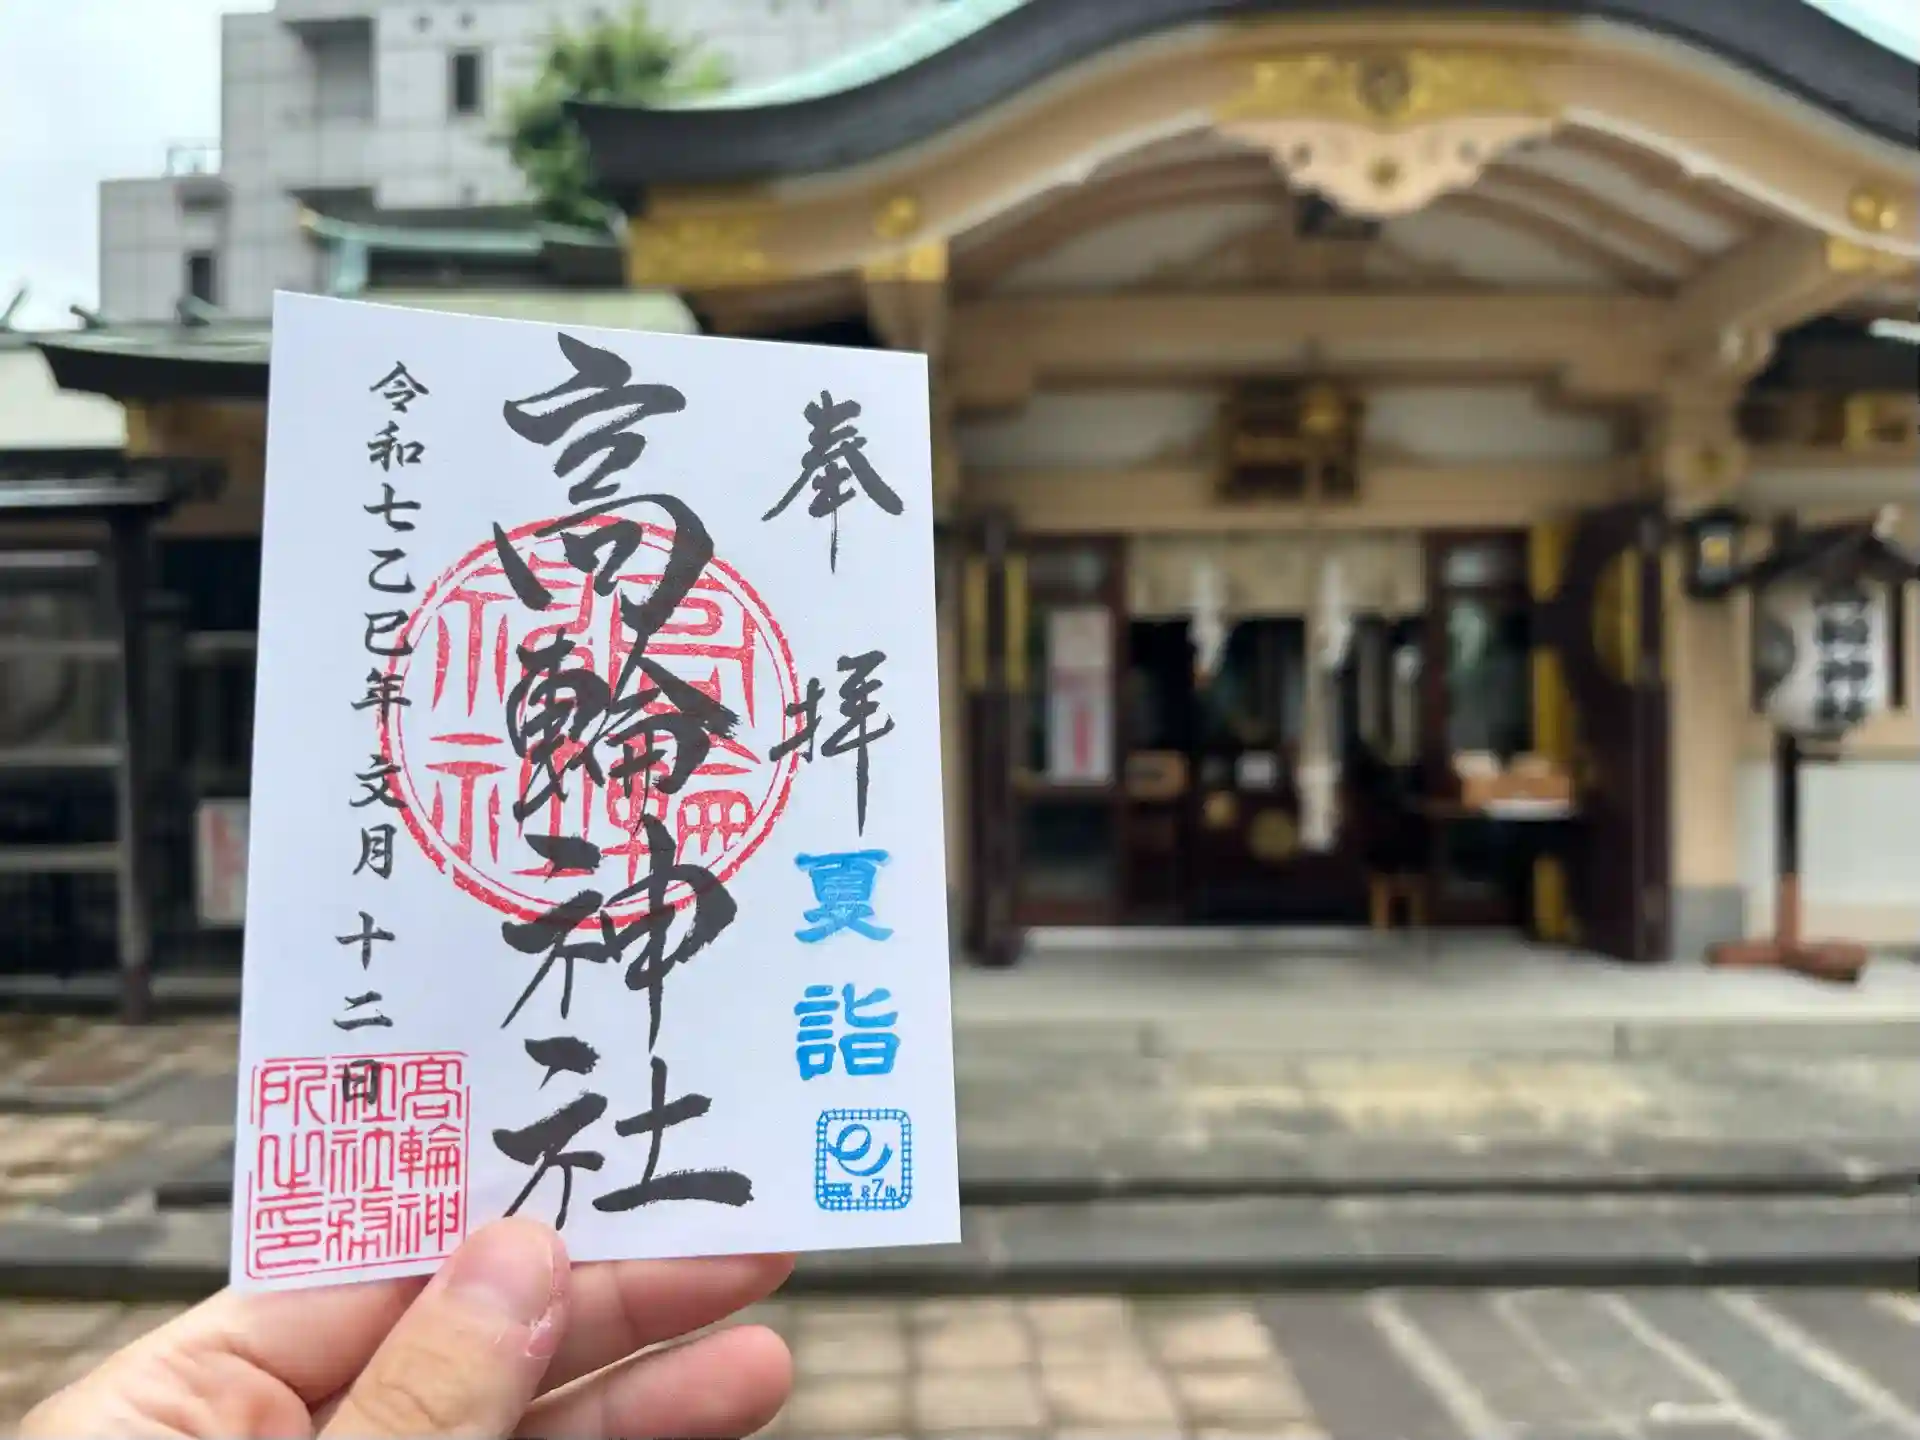 奉拝
夏詣
87th
高輪神社
令和七乙巳年文月十二日
高輪神
社社務
所之印